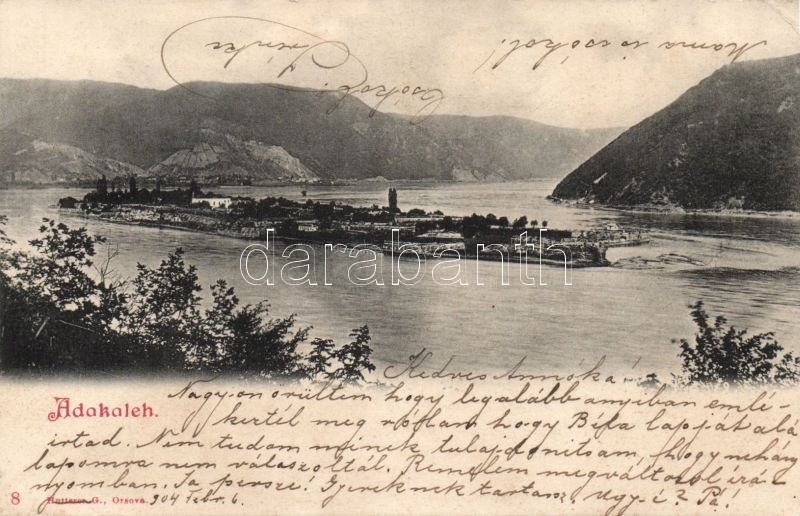 darabanth
Kedves Annóka!
Adakaleh.
Nagyon örültem hogy legalább anyiban emlé-
kertél meg rólam hogy Béla lapját alá
irtad. Nem tudom minek tulajdonitsam, hogy nehány
lapomra nem válaszoltál. Remélem megváltozol irá-
nyomban. Ja persze! Gyereknek tartasz. Ugy-e? Pá!
8
Hutterer G., Orsova.
904 Febr. 6.